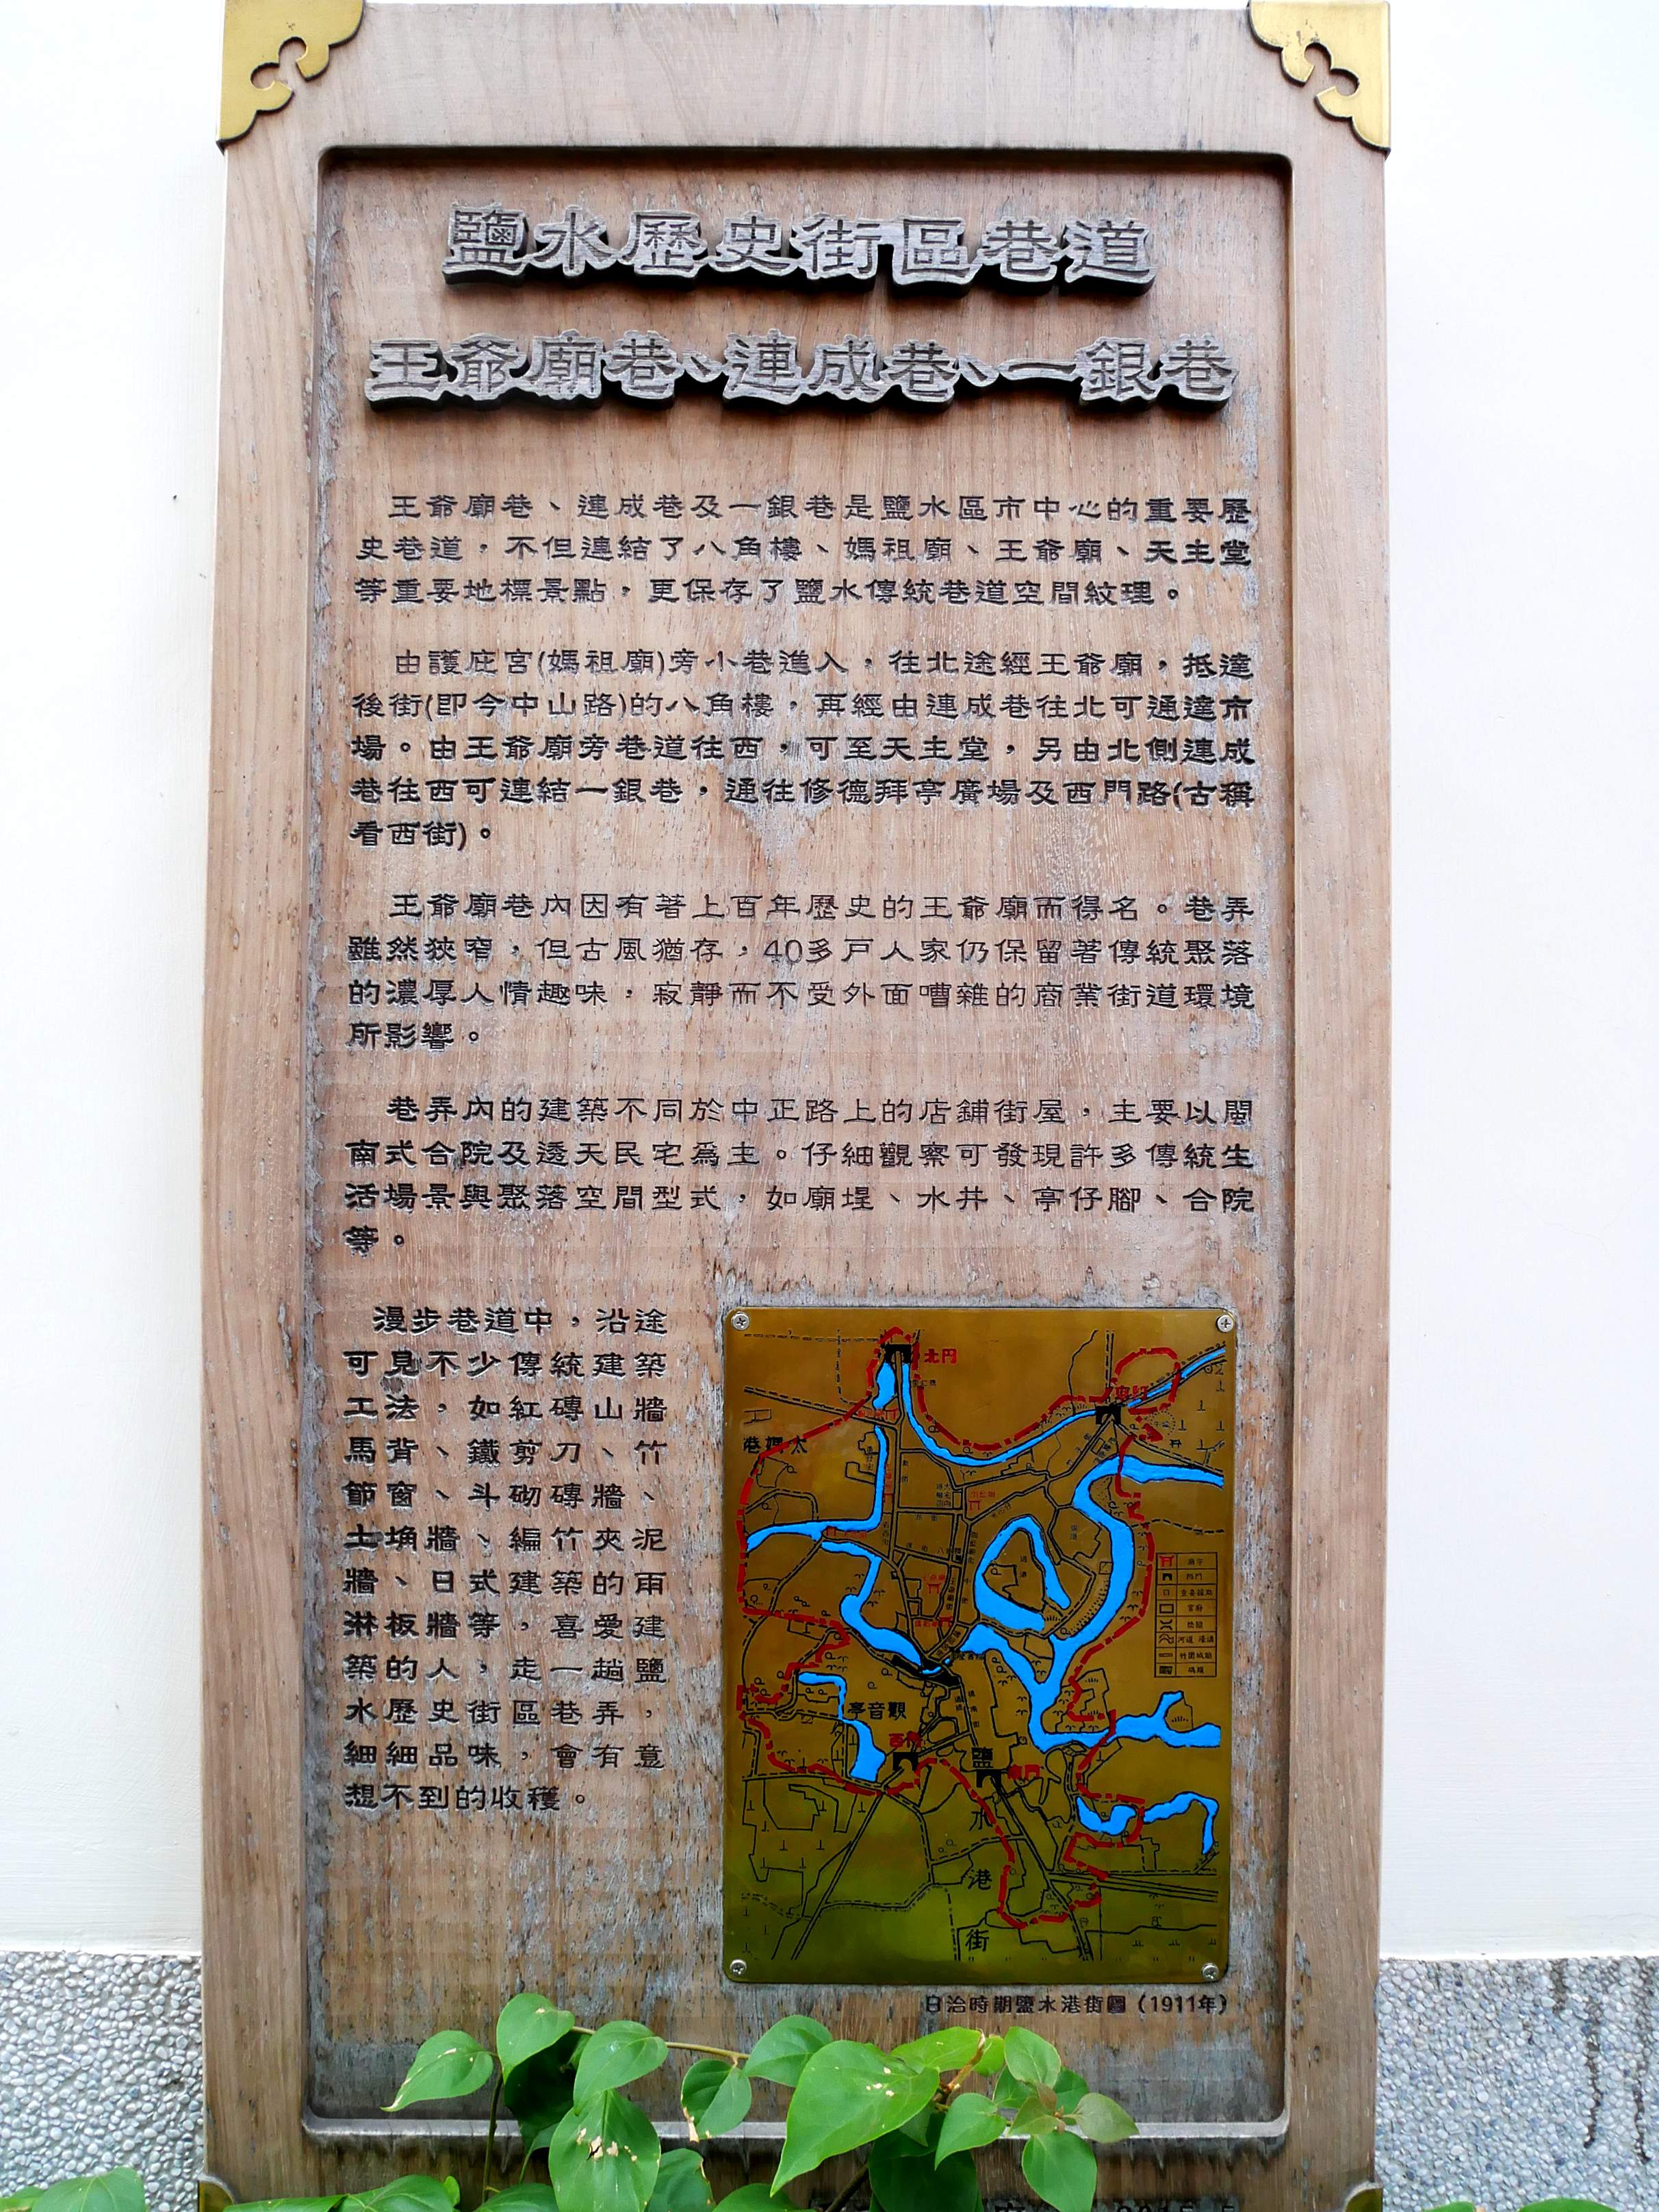 鹽水歷史街區巷道
王爺廟巷、連成巷、一銀巷
王爺廟巷、連成巷及一銀巷是鹽水區市中心的重要歷
史巷道，不但連結了八角樓、媽祖廟、王爺廟、天主堂
等重要地標景點，更保存了鹽水傳統巷道空間紋理。
由護庇宮(媽祖廟)旁小巷進入，往北途經王爺廟，抵達
後街(即今中山路)的八角樓，再經由連成巷往北可通達市
場。由王爺廟旁巷道往西，可至天主堂，另由北側連成
巷往西可連結一銀巷，通往修德拜亭廣場及西門路(古稱
看西街)。
王爺廟巷內因有著上百年歷史的王爺廟而得名。巷弄
雖然狹窄，但古風猶存，40多戶人家仍保留著傳統聚落
的濃厚人情趣味，寂靜而不受外面嘈雜的商業街道環境
所影響。
巷弄內的建築不同於中正路上的店鋪街屋，主要以閩
南式合院及透天民宅為主。仔細觀察可發現許多傳統生
活場景與聚落空間型式，如廟埕、水井、亭仔腳、合院
等。
漫步巷道中，沿途
可見不少傳統建築
工法，如紅磚山牆
馬背、鐵剪刀、竹
節窗、斗砌磚牆、
土埆牆、編竹夾泥
牆、日式建築的雨
淋板牆等，喜愛建
築的人，走一趟鹽
水歷史街區巷弄，
細細品味，會有意
想不到的收穫。
北門
東門
港媽太
亭音觀
西門
南門
鹽
水
港
街
廟宇
日治時期鹽水港街圖（1911年）